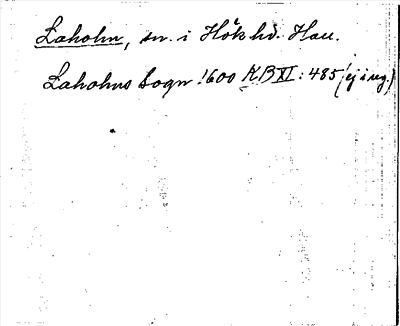 Laholm, sn. i Hök hd. Hall.
Laholms Sogn 1600 KB XI: 485 (ej i reg.)